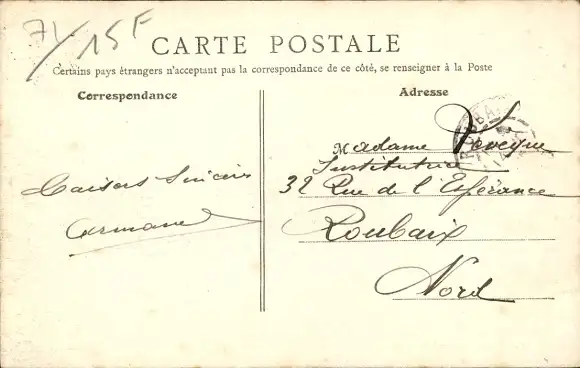 71 15F
CARTE POSTALE
Certains pays étrangers n'acceptant pas la correspondance de ce côté, se renseigner à la Poste
Correspondance
Adresse
Madame
Institutrice
32 Rue de l'Espérance
Roubaix
Nord
Baisers Sincères
Germaine